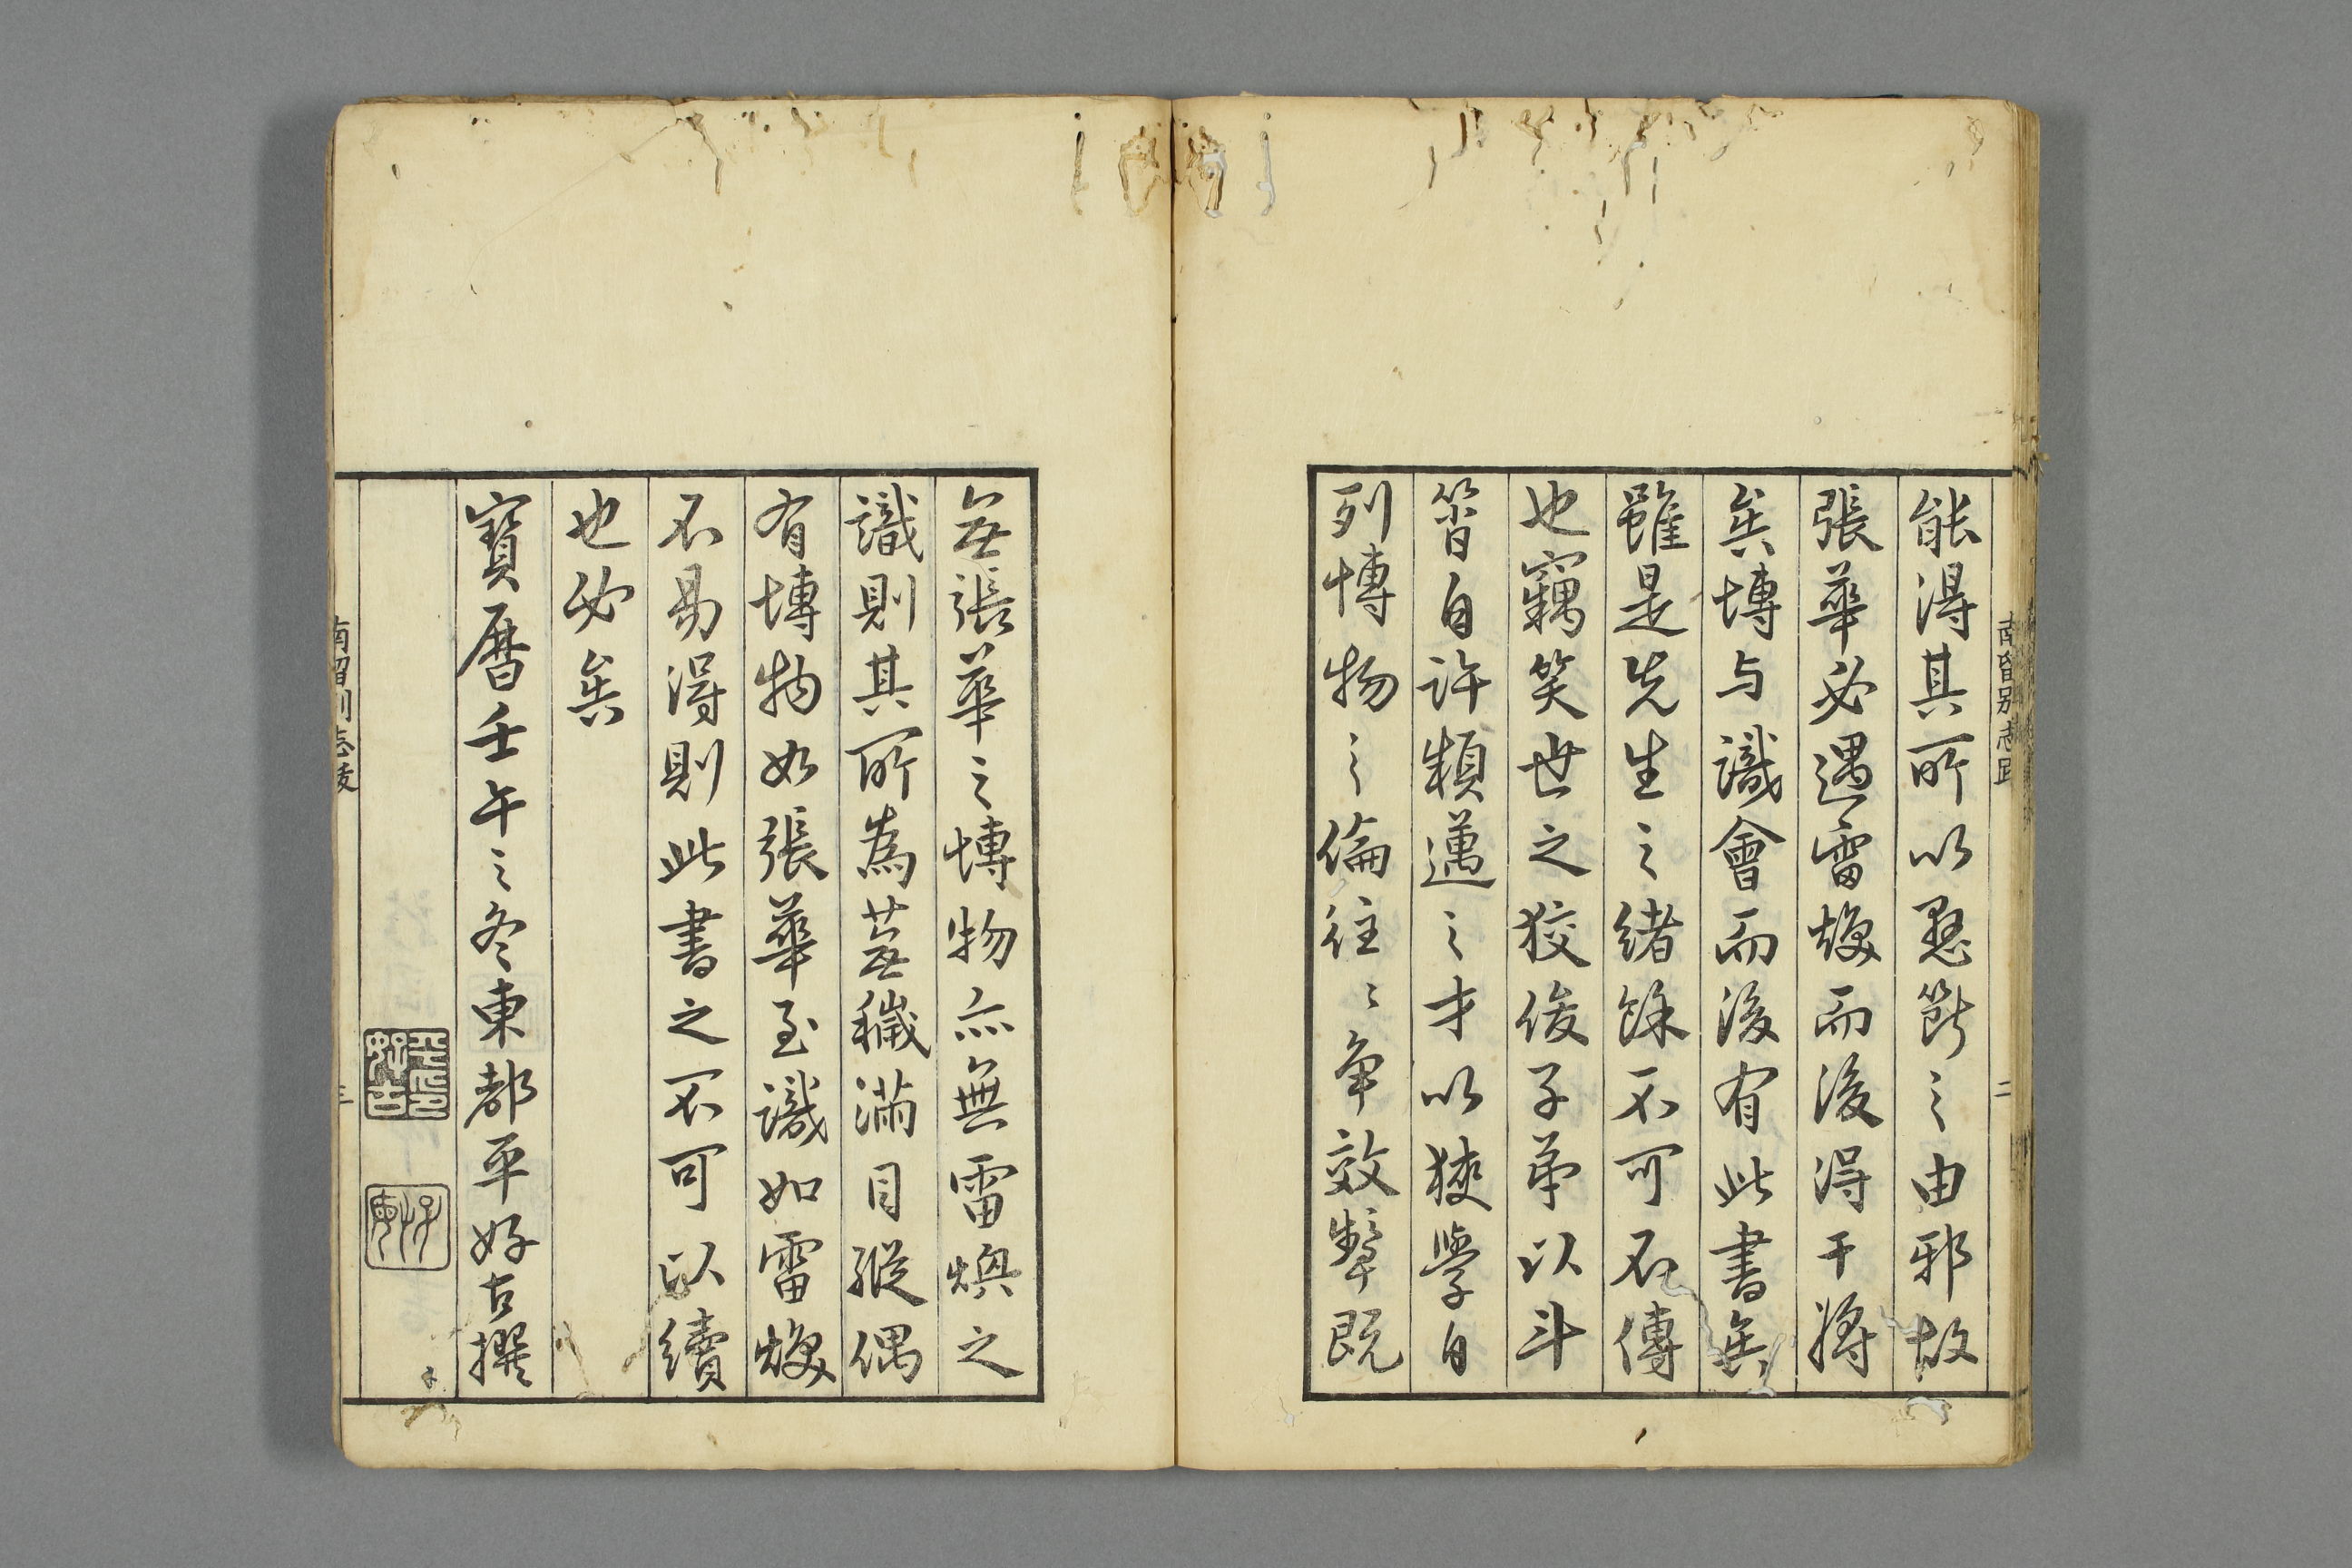 能得其所以懸斷之由邪故
張華必遇雷煥而後得干將
矣博与識會而後有此書矣
雖是先生之緒餘不可不傳
也竊笑世之狡俊子弟以斗
筲自許穎邁之才以狹學自
列博物之倫往〻争效顰既
無張華之博物亦無雷煥之
識則其所為蕪穢滿目縱偶
有博物如張華至識如雷煥
不易得則此書之不可以續
也必矣
寶暦壬午之冬東都平好古撰
南留別志跋
二
三